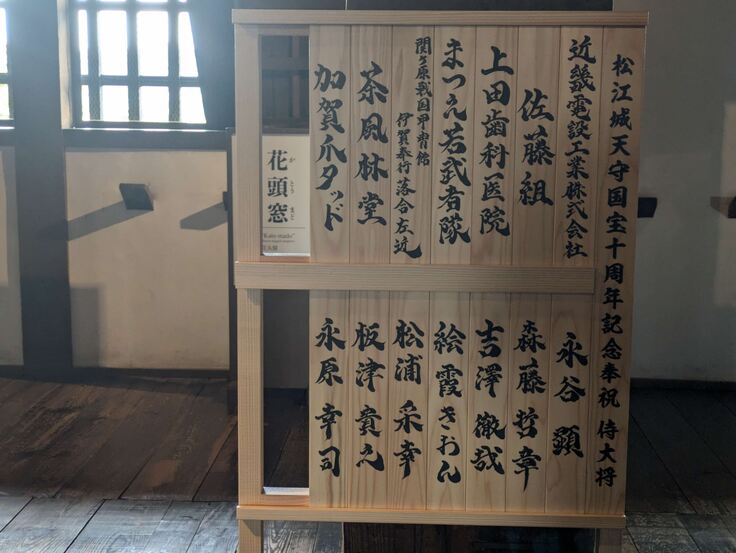 松江城天守国宝十周年記念奉祝 侍大将
近畿電設工業株式会社
佐藤組
上田歯科医院
まつえ若武者隊
関ヶ原戦国甲冑館
伊賀奉行 落合左近
茶風林堂
加賀爪タッド
永谷 顕
森藤哲章
吉澤徹哉
絵霞きおん
松浦采幸
板津貴之
永原幸司
花頭窓
か とう まど
"Kato-mado"